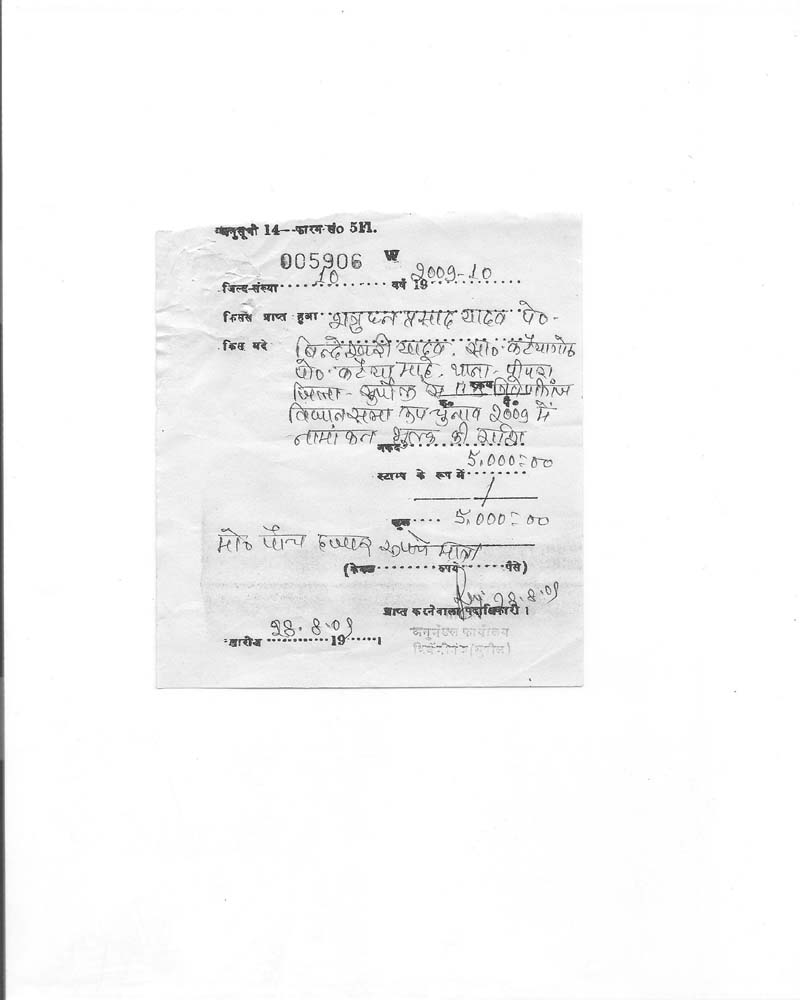 अनुसूची 14--फारम सं० 511.
005906 W
जिल्द-संख्या 10 वर्ष 19 2009-10
किससे प्राप्त हुआ शत्रुघ्न प्रसाद यादव पे०-
किस मदे बिन्देश्वरी यादव. सा० कटैया
पो० कटैया माहे. थाना- पीपरा
जिला- सुपौल से त्रिवेणीगंज
विधान सभा उप चुनाव 2009 में
नामांकन शुल्क की राशि
नकद
5,000=00
स्टाम्प के रूप में
कुल 5,000=00
मो० पाँच हजार रूपये मात्र
(केवल रुपये पैसे)
28.8.09
प्राप्त करनेवाला पदाधिकारी।
28.8.09
तारीख 19 ।
अनुमंडल कार्यालय
त्रिवेणीगंज (सुपौल)